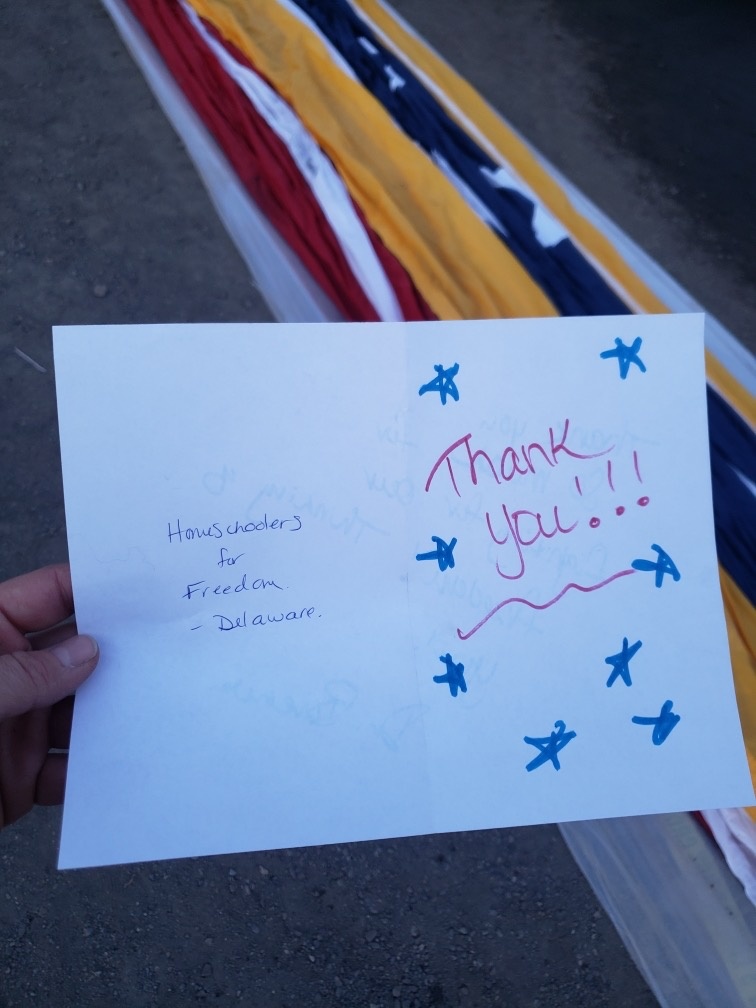 Homeschoolers
for
Freedom.
- Delaware.
Thank
you!!!